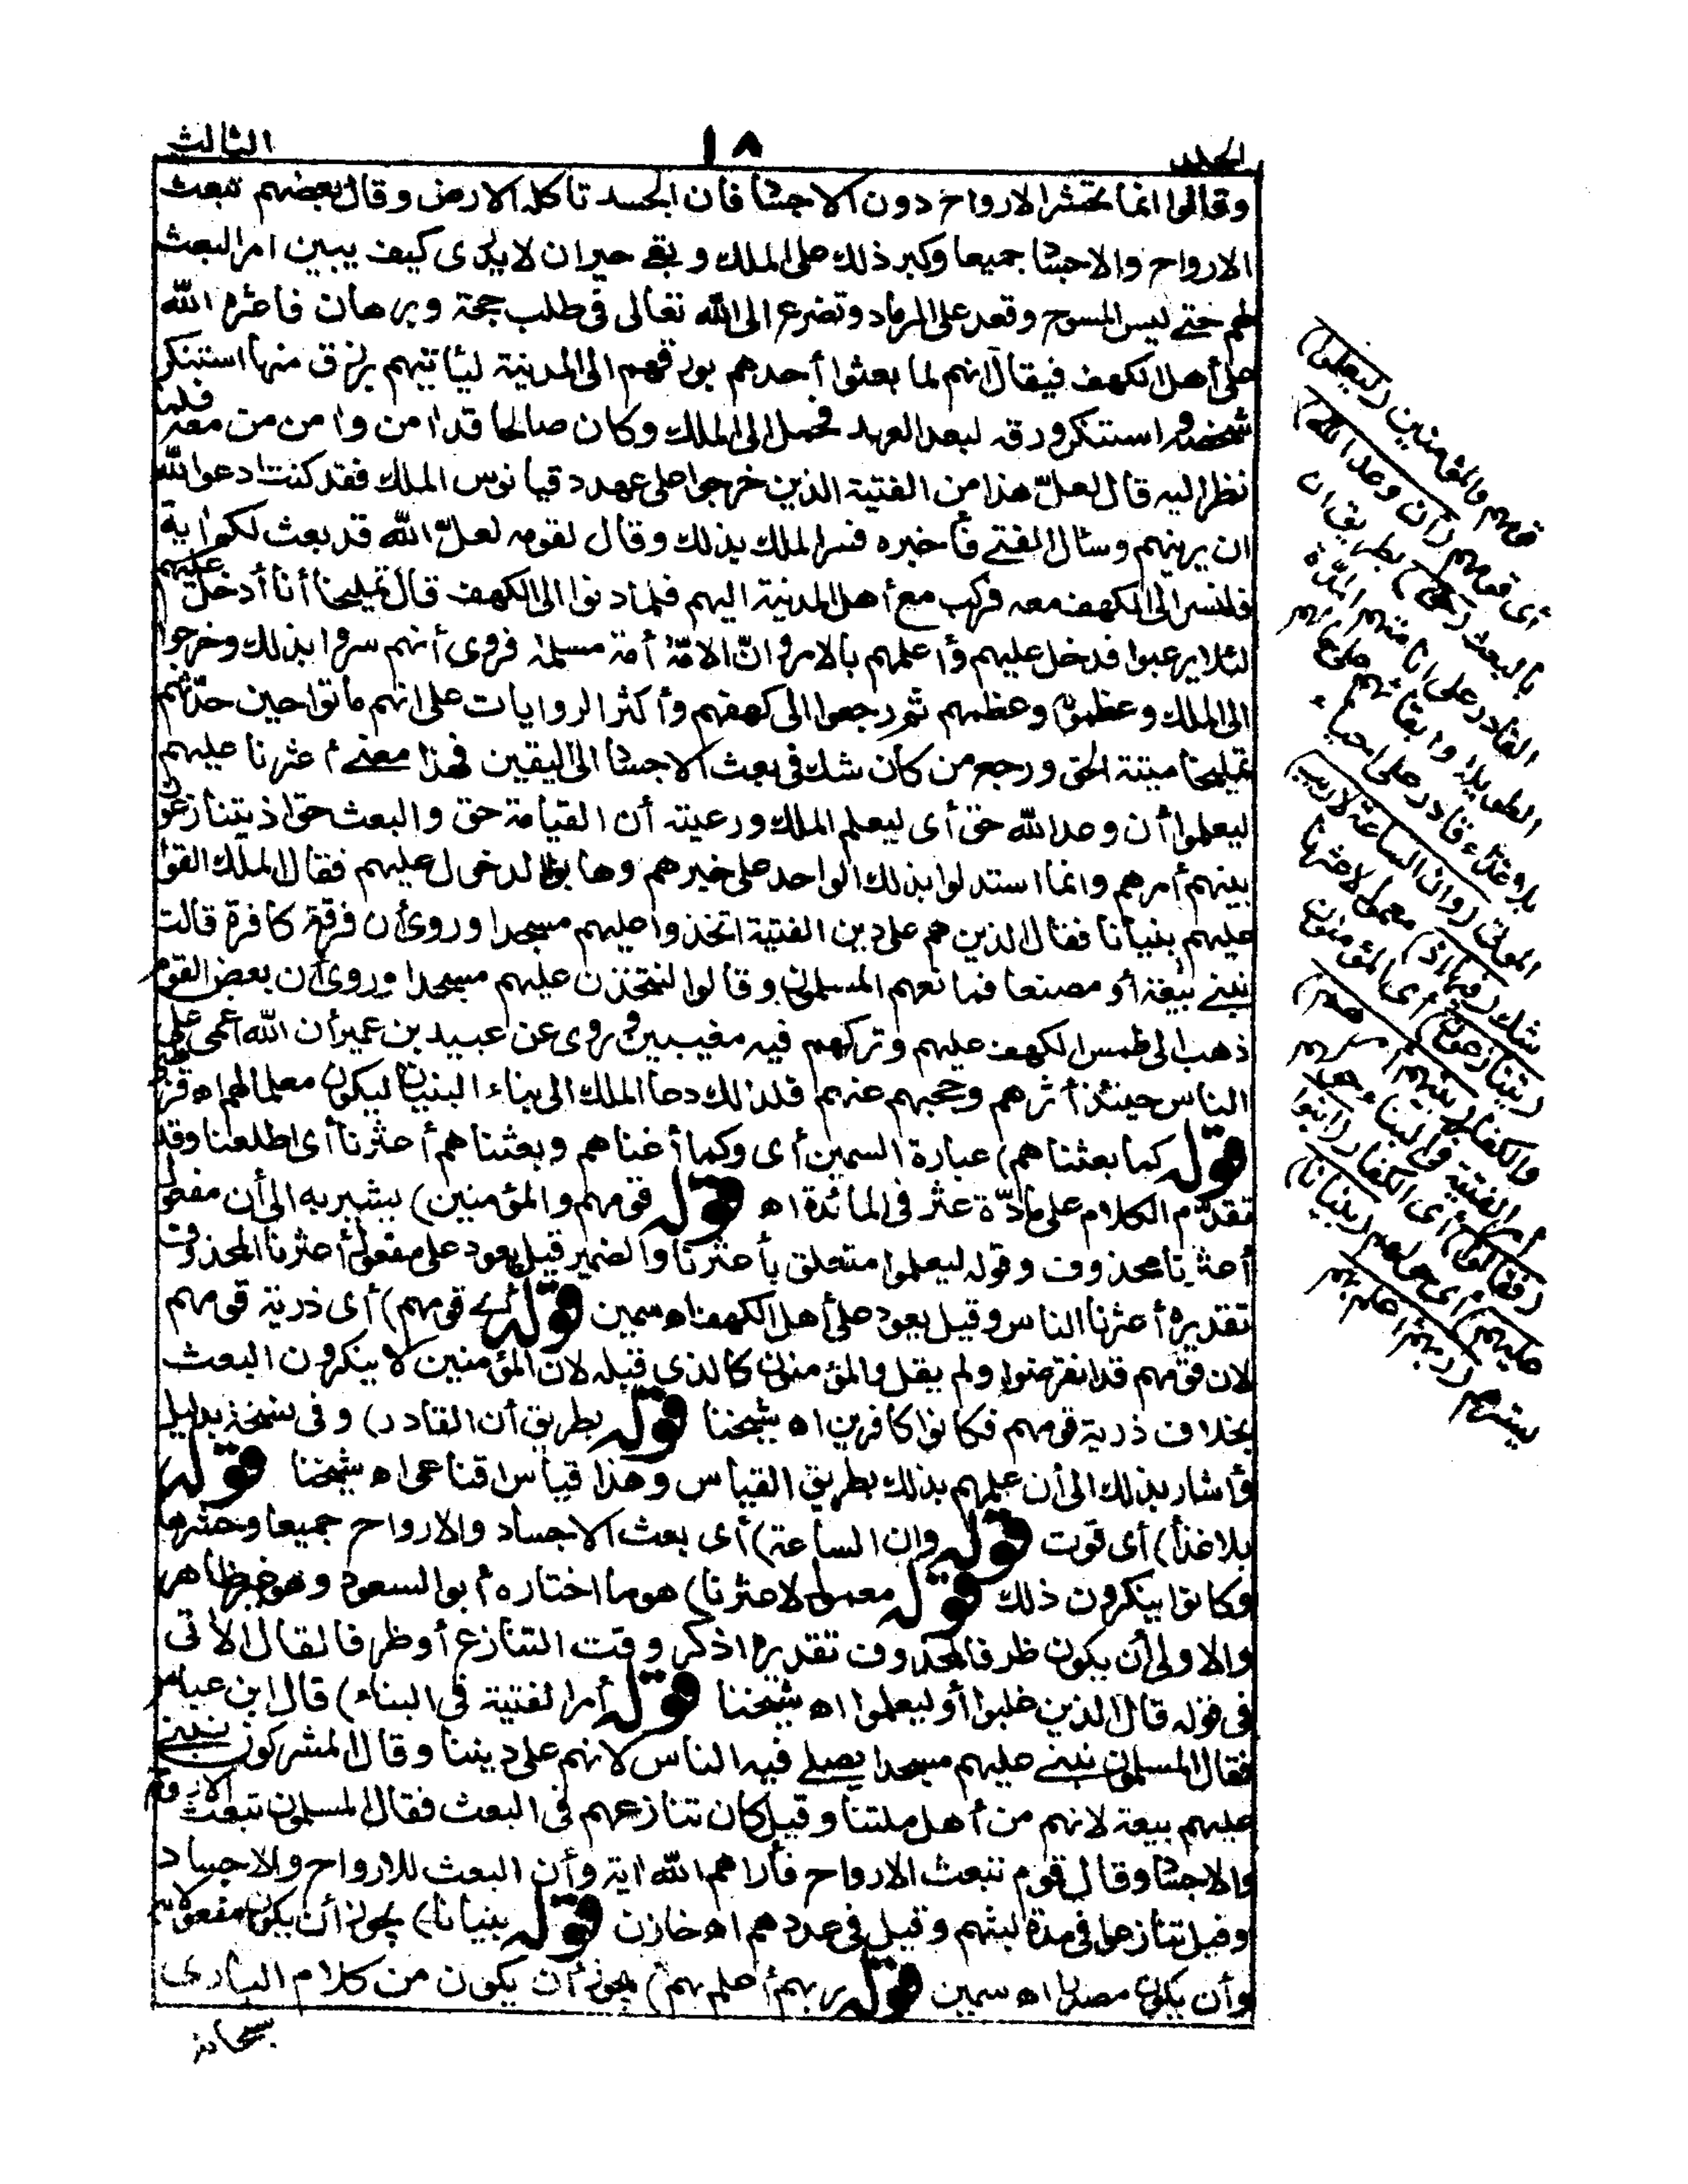 الجلد
١٨
الثالث
وقالوا انما تحشر الارواح دون الاجسا فان الجسد تاكله الارض وقال بعضهم تبعث
الارواح والاجسا جميعا وكبر ذلك على الملك وبقى حيران لا يدرى كيف يبين امر البعث
لهم حتى لبس المسوح وقعد على الرماد وتضرع الى الله تعالى فى طلب حجة وبرهان فاعثرهم الله
على أهل الكهف فيقال انهم لما بعثوا أحدهم بورقهم الى المدينة ليأتيهم برزق منها استنكر
شخصه واستنكر ورقه لبعد العهد فحمل الى الملك وكان صالحا قد امن وامن من معه فلما
نظر اليه قال لعلّ هذا من الفتية الذين خرجوا على عهد دقيانوس الملك فقد كنت ادعو الله
ان يرينهم وسال الفتى فأخبره فسر الملك بذلك وقال لقومه لعلّ الله قد بعث لكم اية
فلنسر الى الكهف معه فركب مع أهل المدينة اليهم فلما دنوا الى الكهف قال تمليخا أنا أدخل عليهم
لئلا يرعبوا فدخل عليهم وأعلمهم بالامر وانّ الامّة أمة مسلمة فروى أنهم سروا بذلك وخرجوا
الى الملك وعظموه وعظمهم ثم رجعوا الى كهفهم وأكثر الروايات على انهم ماتوا حين حدّثهم
تمليخا ميتة الحق ورجع من كان شك فى بعث الاجسا الى اليقين فهذا معنى أعثرنا عليهم
ليعلموا أن وعد الله حق أى ليعلم الملك ورعيته أن القيامة حق والبعث حق اذ يتنازعون
بينهم أمرهم وانما استدلوا بذلك الواحد على خبرهم وهابوا الدخول عليهم فقال الملك ابنوا
عليهم بنيانا فقال الذين هم على دين الفتية اتخذوا عليهم مسجدا وروى أن فرقة كافرة قالت
نبنى بيعة أو مصنعا فمانعهم المسلمون وقالوا لنتخذن عليهم مسجدا وروى أن بعض القوم
ذهب الى طمس الكهف عليهم وتركهم فيه مغيبين وروى عن عبيد بن عمير أن الله أعمى على
الناس حينئذ أثرهم وحجبهم عنهم فلذلك دعا الملك الى بناء البنيان ليكون معلما لهم اه قرطبى
قوله كما بعثناهم) عبارة السمين أى وكما أنمناهم وبعثناهم أعثرنا أى اطلعنا وقد
تقدّم الكلام على مادّة عثر فى المائدة اه قوله قومهم والمؤمنين) يشير به الى أن مفعول
أعثرنا محذوف وقوله ليعلموا متعلق بأعثرنا والضمير قيل يعود على مفعول أعثرنا المحذوف
تقديره أعثرنا الناس وقيل يعود على أهل الكهف اه سمين قوله أى قومهم) أى ذرية قومهم
لان قومهم قد انقرضوا ولم يقل والمؤمنون كالذى قبله لان المؤمنين لا ينكرون البعث
بخلاف ذرية قومهم فكانوا كافرين اه شيخنا قوله بطريق أن القادر) وفى نسخة بدليل
وأشار بذلك الى أن علمهم بذلك بطريق القياس وهذا قياس اقناعى اه شيخنا قوله
بلا غذأ) أى قوت قوله وان الساعة) أى بعث الاجساد والارواح جميعا وحشرها
وكانوا ينكرون ذلك قوله معمول لاعثرنا) هو ما اختاره أبو السعود وهو غير ظاهر
والاولى أن يكون ظرفا لمحذوف تقديره اذكر وقت التنازع أو ظرفا لقال الاتى
فى قوله قال الذين غلبوا أو ليعلموا اه شيخنا قوله أمر الفتية فى البناء) قال ابن عباس
فقال المسلمون نبنى عليهم مسجدا يصلى فيه الناس لانهم على ديننا وقال المشركون نبنى
عليهم بيعة لانهم من أهل ملتنا وقيل كان تنازعهم فى البعث فقال المسلمون تبعث الارواح
والاجسا وقال قوم تبعث الارواح فأراهم الله اية وأن البعث للارواح والاجساد
وقيل تنازعوا فى مدة لبثهم وقيل فى عددهم اه خازن قوله بنيانا) يجوز أن يكون مفعولا به
وأن يكون مصدرا اه سمين قوله ربهم أعلم بهم) يجوز أن يكون من كلام البارى
سبحانه
قومهم والمؤمنين (ليعلموا)
أى قومهم (أن وعد الله)
بالبعث (حق) بطريق ان
القادر على انامتهم المدّة
الطويلة وابقائهم على حالهم
بلا غذاء قادر على احياء
الموتى (وان الساعة لا ريب)
شك (فيها اذ) معمول لاعثرنا
(يتنازعون) أى المؤمنون
والكفار (بينهم أمرهم)
أمر الفتية فى البناء حولهم
(فقالوا) أى الكفار (ابنوا
عليهم) أى حولهم (بنيانا)
يسترهم (ربهم اعلم بهم